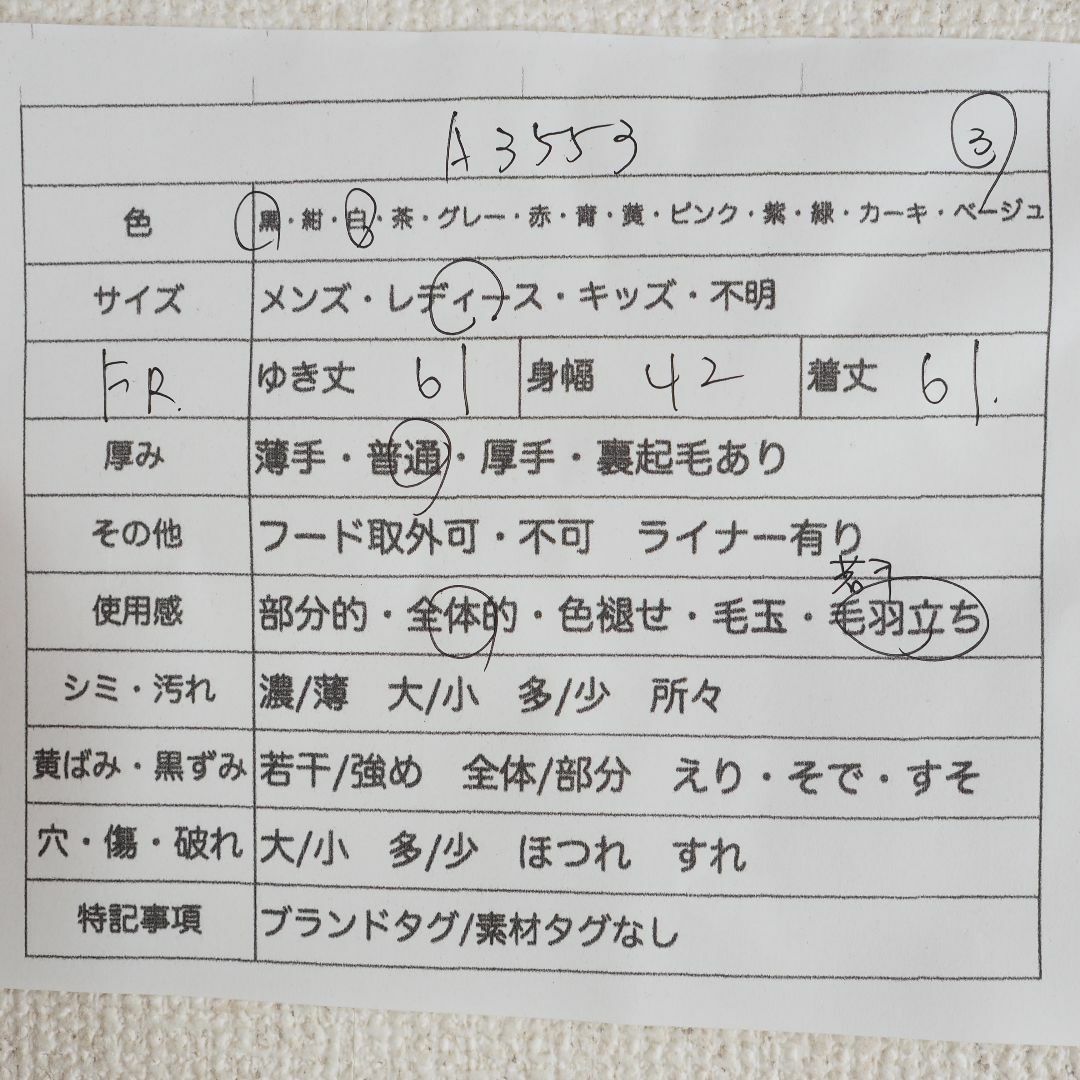 A3553 3
色 黒・紺・白・茶・グレー・赤・青・黄・ピンク・紫・緑・カーキ・ベージュ
サイズ メンズ・レディース・キッズ・不明
FR. ゆき丈 61 身幅 42 着丈 61.
厚み 薄手・普通・厚手・裏起毛あり
その他 フード取外可・不可 ライナー有り
若干
使用感 部分的・全体的・色褪せ・毛玉・毛羽立ち
シミ・汚れ 濃/薄 大/小 多/少 所々
黄ばみ・黒ずみ 若干/強め 全体/部分 えり・そで・すそ
穴・傷・破れ 大/小 多/少 ほつれ すれ
特記事項 ブランドタグ/素材タグなし